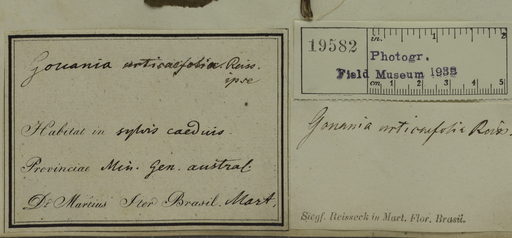 Gouania urticaefolia Reiss.
ipse
Habitat in sylvis caeduis.
Provinciae Min. Gen. austral
Dr Martius Iter Brasil. Mart.
in. 1 2
19582
Photogr.
Field Museum 1938
cm. 1 2 3 4 5
Gouania urticaefolia Reiss.
Siegf. Reisseck in Mart. Flor. Brasil.